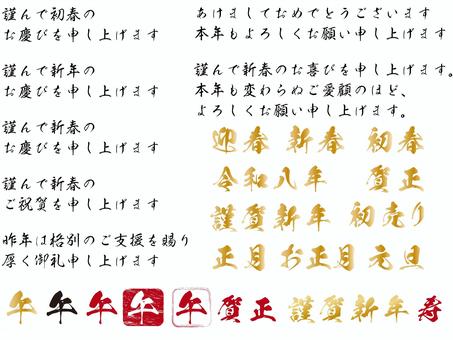 謹んで初春の
お慶びを申し上げます
謹んで新年の
お慶びを申し上げます
謹んで新春の
お慶びを申し上げます
謹んで新春の
ご祝賀を申し上げます
昨年は格別のご支援を賜り
厚く御礼申し上げます
あけましておめでとうございます
本年もよろしくお願い申し上げます
謹んで新春のお喜びを申し上げます。
本年も変わらぬご愛顧のほど、
よろしくお願い申し上げます。
迎春 新春 初春
令和八年 賀正
謹賀新年 初売り
正月 お正月 元旦
午 午 午 午 午 賀正 謹賀新年 寿